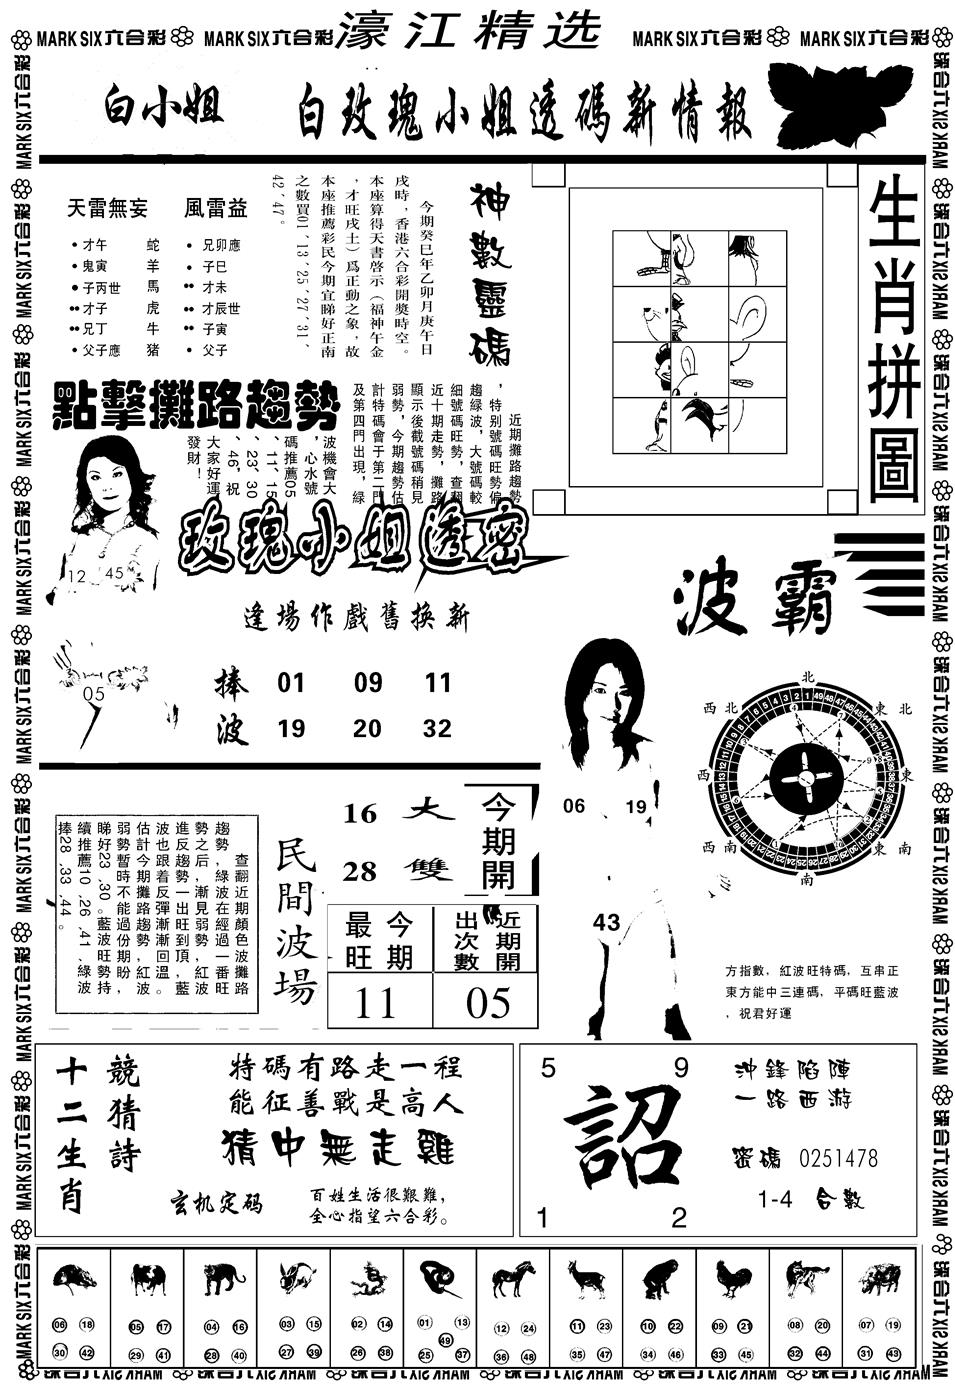 MARK SIX 六合彩 MARK SIX 六合彩 濠江精选 MARK SIX 六合彩 MARK SIX 六合彩
白小姐 白玫瑰小姐透碼新情報
天雷無妄 風雷益
才午 蛇 兄卯應
鬼寅 羊 子巳
子丙世 馬 才未
才子 虎 才辰世
兄丁 牛 子寅
父子應 猪 父子
神數靈碼
今期癸巳年乙卯月庚午日
戌時，香港六合彩開獎時空。
本座算得天書啓示（福神午金
，才旺戌土）爲正動之象，故
本座推薦彩民今期宜睇好正南
之數買01、13、25、27、31、
42、47。
生肖拼圖
點擊攤路趨勢
近期攤路趨勢
，特别號碼旺勢偏
趨綠波，大號碼較
細號碼旺勢，查翻
近十期走勢，攤路
顯示後截號碼稍見
弱勢，今期趨勢估
計特碼會于第二門
及第四門出現，綠
波機會大
，心水號
碼推薦05
、11、15
、23、30
、46，祝
大家好運
發財！
12 45
05
玫瑰小姐透密
逢場作戲舊換新
捧 01 09 11
波 19 20 32
波霸
06 19
43
北
西北 東北
西 東
西南 東南
南
方指數，紅波旺特碼，互串正
東方能中三連碼，平碼旺藍波
，祝君好運
查翻近期顏色波攤路
趨勢，綠波在經過一番旺
勢之后，漸見弱勢，紅波
進反趨勢一出旺到頂，藍
波也跟着反彈漸漸回溫。
估計今期攤路趨勢，紅波
弱勢暫時不能過份期盼，
睇好23、30。藍波旺勢持
續推薦10、26、41、綠波
捧28、33、44。
民間波場
16 大
28 雙
今期開
今期最旺
近期開出次數
11 05
十二生肖
競猜詩
特碼有路走一程
能征善戰是高人
猜中無走雞
玄机定码
百姓生活很艱難，
全心指望六合彩。
5 9
詔
1 2
沖鋒陷陣
一路西游
密碼 0251478
1-4 合數
06 18 05 17 04 16 03 15 02 14 01 13 12 24 11 23 10 22 09 21 08 20 07 19
49
30 42 29 41 28 40 27 39 26 38 25 37 36 48 35 47 34 46 33 45 32 44 31 43